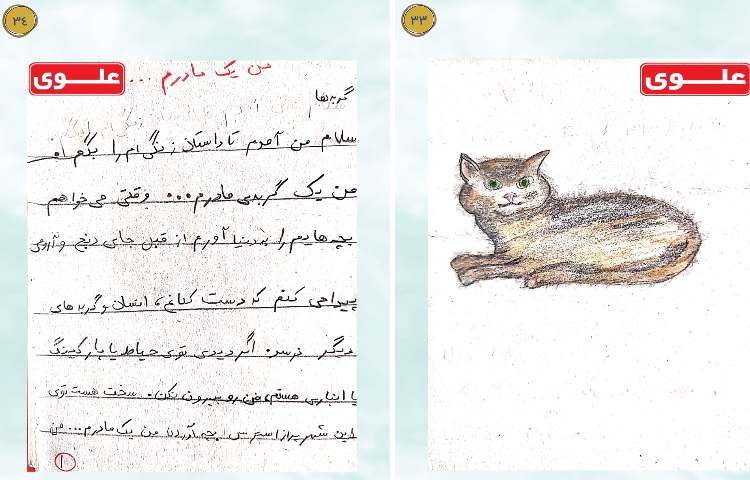 ٣٤
علوی
من یک مادرم ...
گربه‌ها
سلام من آمدم تا داستان زندگی ام را بگم
من یک گربه‌ی مادرم... وقتی می‌خواهم
بچه هایم را بدنیا آورم از قبل جای دنج و آرومی
پیدا می کنم که دست کلاغ، انسان و گربه های
دیگر نرسد. اگر دیدی توی حیاط یا پارکینگ
یا انباری هستم، من رو بیرون نکن. سخت هست توی
این شهر پر از استرس بچه آوردن من یک مادرم... من
١
٣٣
علوی